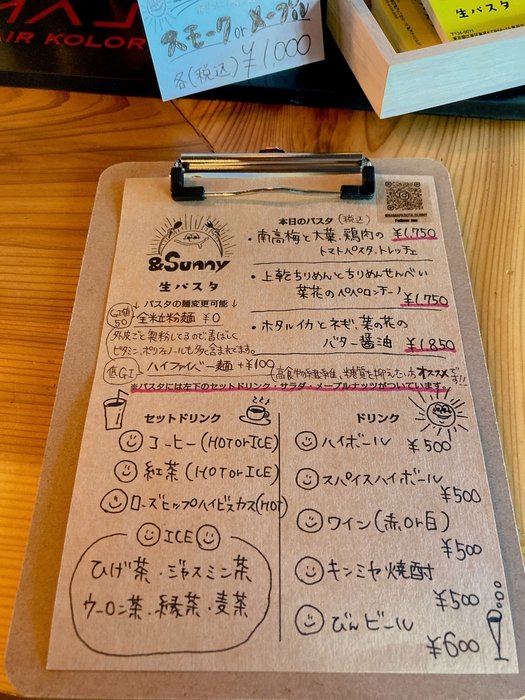 AIR KOLOR
スモーク or メープル
各(税込) ¥1,000
生パスタ
@KAMAPASTA.SUNNY
Follow me
&Sunny
生パスタ
本日のパスタ (税込)
・南高梅と大葉、鶏肉の ¥1,750
トマトパスタ、トレッチェ
・上乾ちりめんとちりめんせんべい
菜花のペペロンチーノ ¥1,750
・ホタルイカとネギ、菜の花の
バター醤油 ¥1,850
↓ パスタの麺変更可能 ↓
GI値50 全粒粉麺 ¥0
外皮ごと製粉してるので、香ばしく
ビタミン、ポリフェノールも多く含まれてます。
低GI ハイファイバー麺 +¥100 (高食物繊維、糖質を抑えたい方オススメです!!
※パスタには左下のセットドリンク・サラダ・メープルナッツがついています。
セットドリンク
コーヒー (HOT or ICE)
紅茶 (HOT or ICE)
ローズヒップハイビスカス(HOT)
ICE
ひげ茶・ジャスミン茶
ウーロン茶・緑茶・麦茶
ドリンク
ハイボール ¥500
スパイスハイボール
¥500
ワイン (赤 or 白)
¥500
キンミヤ焼酎
¥500
びんビール
¥600